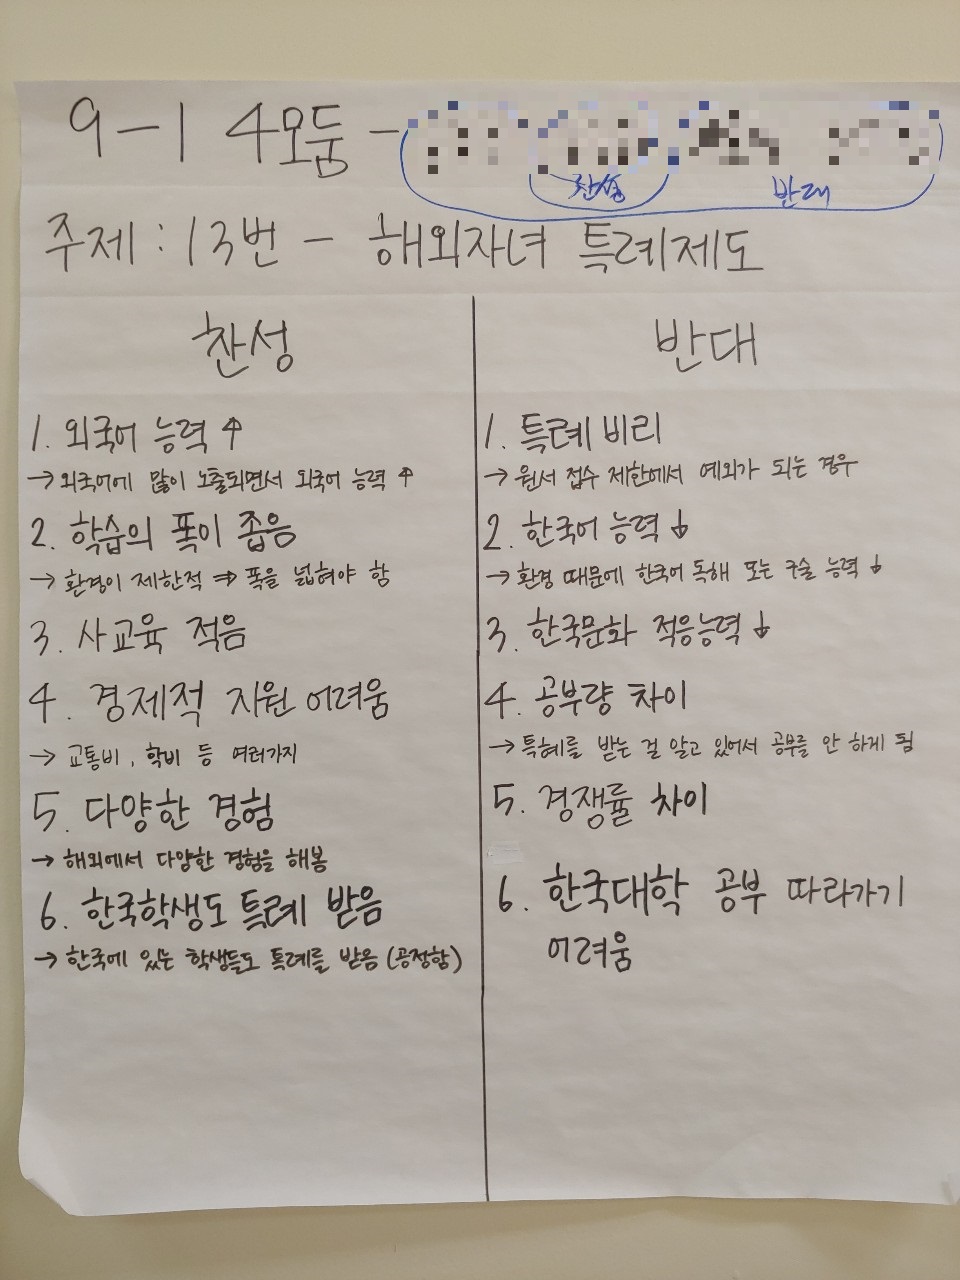 9-1 4모둠 -
찬성 반대
주제 : 13번 - 해외자녀 특례제도
찬성
1. 외국어 능력 ↑
→ 외국어에 많이 노출되면서 외국어 능력 ↑
2. 학습의 폭이 좁음
→ 환경이 제한적 ⇒ 폭을 넓혀야 함
3. 사교육 적음
4. 경제적 지원 어려움
→ 교통비, 학비 등 여러가지
5. 다양한 경험
→ 해외에서 다양한 경험을 해봄
6. 한국학생도 특례 받음
→ 한국에 있는 학생들도 특례를 받음 (공정함)
반대
1. 특례 비리
→ 원서 접수 제한에서 예외가 되는 경우
2. 한국어 능력 ↓
→ 환경 때문에 한국어 독해 또는 구술 능력 ↓
3. 한국문화 적응능력 ↓
4. 공부량 차이
→ 특혜를 받는 걸 알고 있어서 공부를 안 하게 됨
5. 경쟁률 차이
6. 한국대학 공부 따라가기
어려움